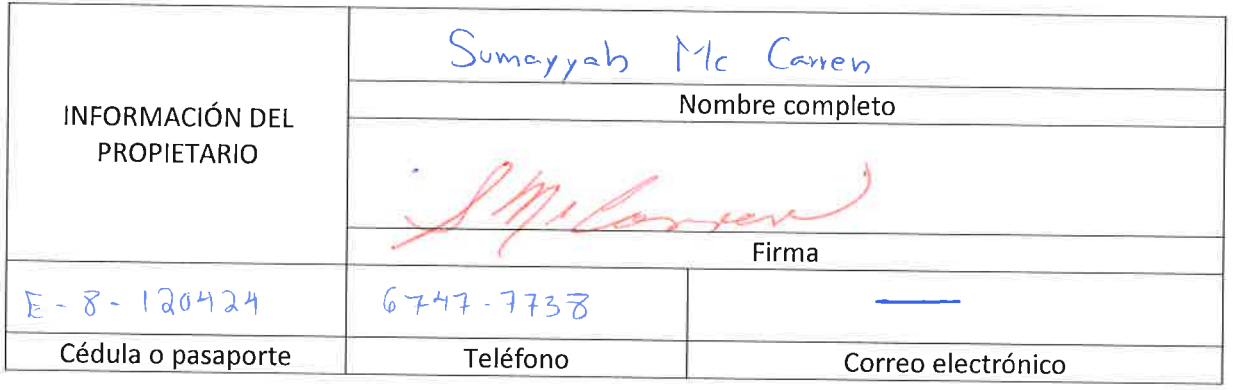 INFORMACIÓN DEL
PROPIETARIO
Sumayyah Mc Carren
Nombre completo
S McCarren
Firma
E-8-120424
6747-7738
Cédula o pasaporte
Teléfono
Correo electrónico